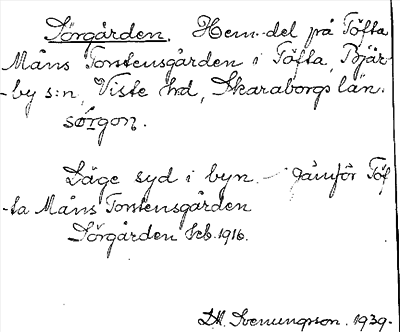 Sörgården. Hem-del på Töfta
Måns Torstensgården i Töfta, Bjär-
-by s:n, Viste hd, Skaraborgs län.
sørgon.
Läge syd i byn. - Jämför Töf-
-ta Måns Torstensgården
Sörgården Seb. 1916.
D.A. Svenungsson. 1939.